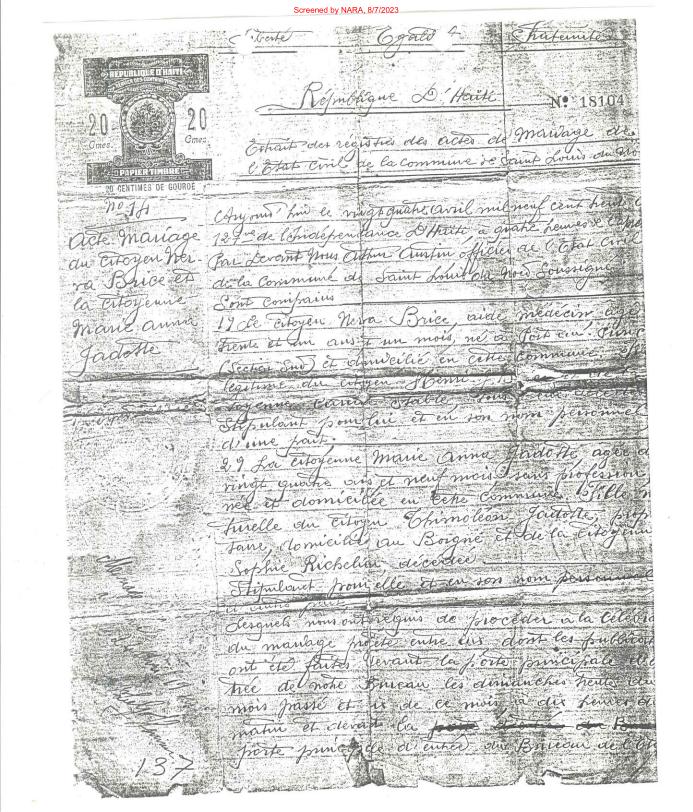 Screened by NARA, 8/7/2023
Liberté Egalité Fraternité
REPUBLIQUE D'HAITI
20 Cmes. 20 Cmes.
PAPIER TIMBRE
20 CENTIMES DE GOURDE
République D'Haïti
No. 18104
Extrait des régistres des actes de Mariage de
l'Etat Civil de la commune de Saint Louis du
No 14
Acte Mariage
du citoyen Ner-
va Brice et
la citoyenne
Marie Anna
Jadotte
Aujourd'hui le vingt quatre Avril mil neuf cent
127me de l'Indépendance D'Haïti à quatre heures de
Par Devant Nous Arthur Austin officier de l'Etat Civil
de la Commune de Saint Louis du Nord Soussigné
Sont comparus
1º Le citoyen Nerva Brice, aide médecin, agé
trente et un ans et un mois, né à Port au Prince
(Section Sud) et domicilié en cette commune
légitime du citoyen
Stipulant pour lui et en son nom personnel
d'une part.
2º La citoyenne Marie Anna Jadotte agée d
vingt quatre ans et neuf mois sans profession
née et domiciliée en cette commune, fille na
turelle du citoyen Thimoléon Jadotte, prop
taire, domicilié au Borgne et de la citoyenne
Sophie Richelieu décédée
Stipulant pour elle et en son nom personnel
d'autre part
Lesquels nous ont réquis de procéder à la célébra
du mariage projeté entre eux dont les publicat
ont été faites devant la porte principale d'en
trée de notre Bureau les dimanches trente du
mois passé et six de ce mois, à dix heures du
matin et devant la
porte principale d'entrée du Bureau de l'Eta
137